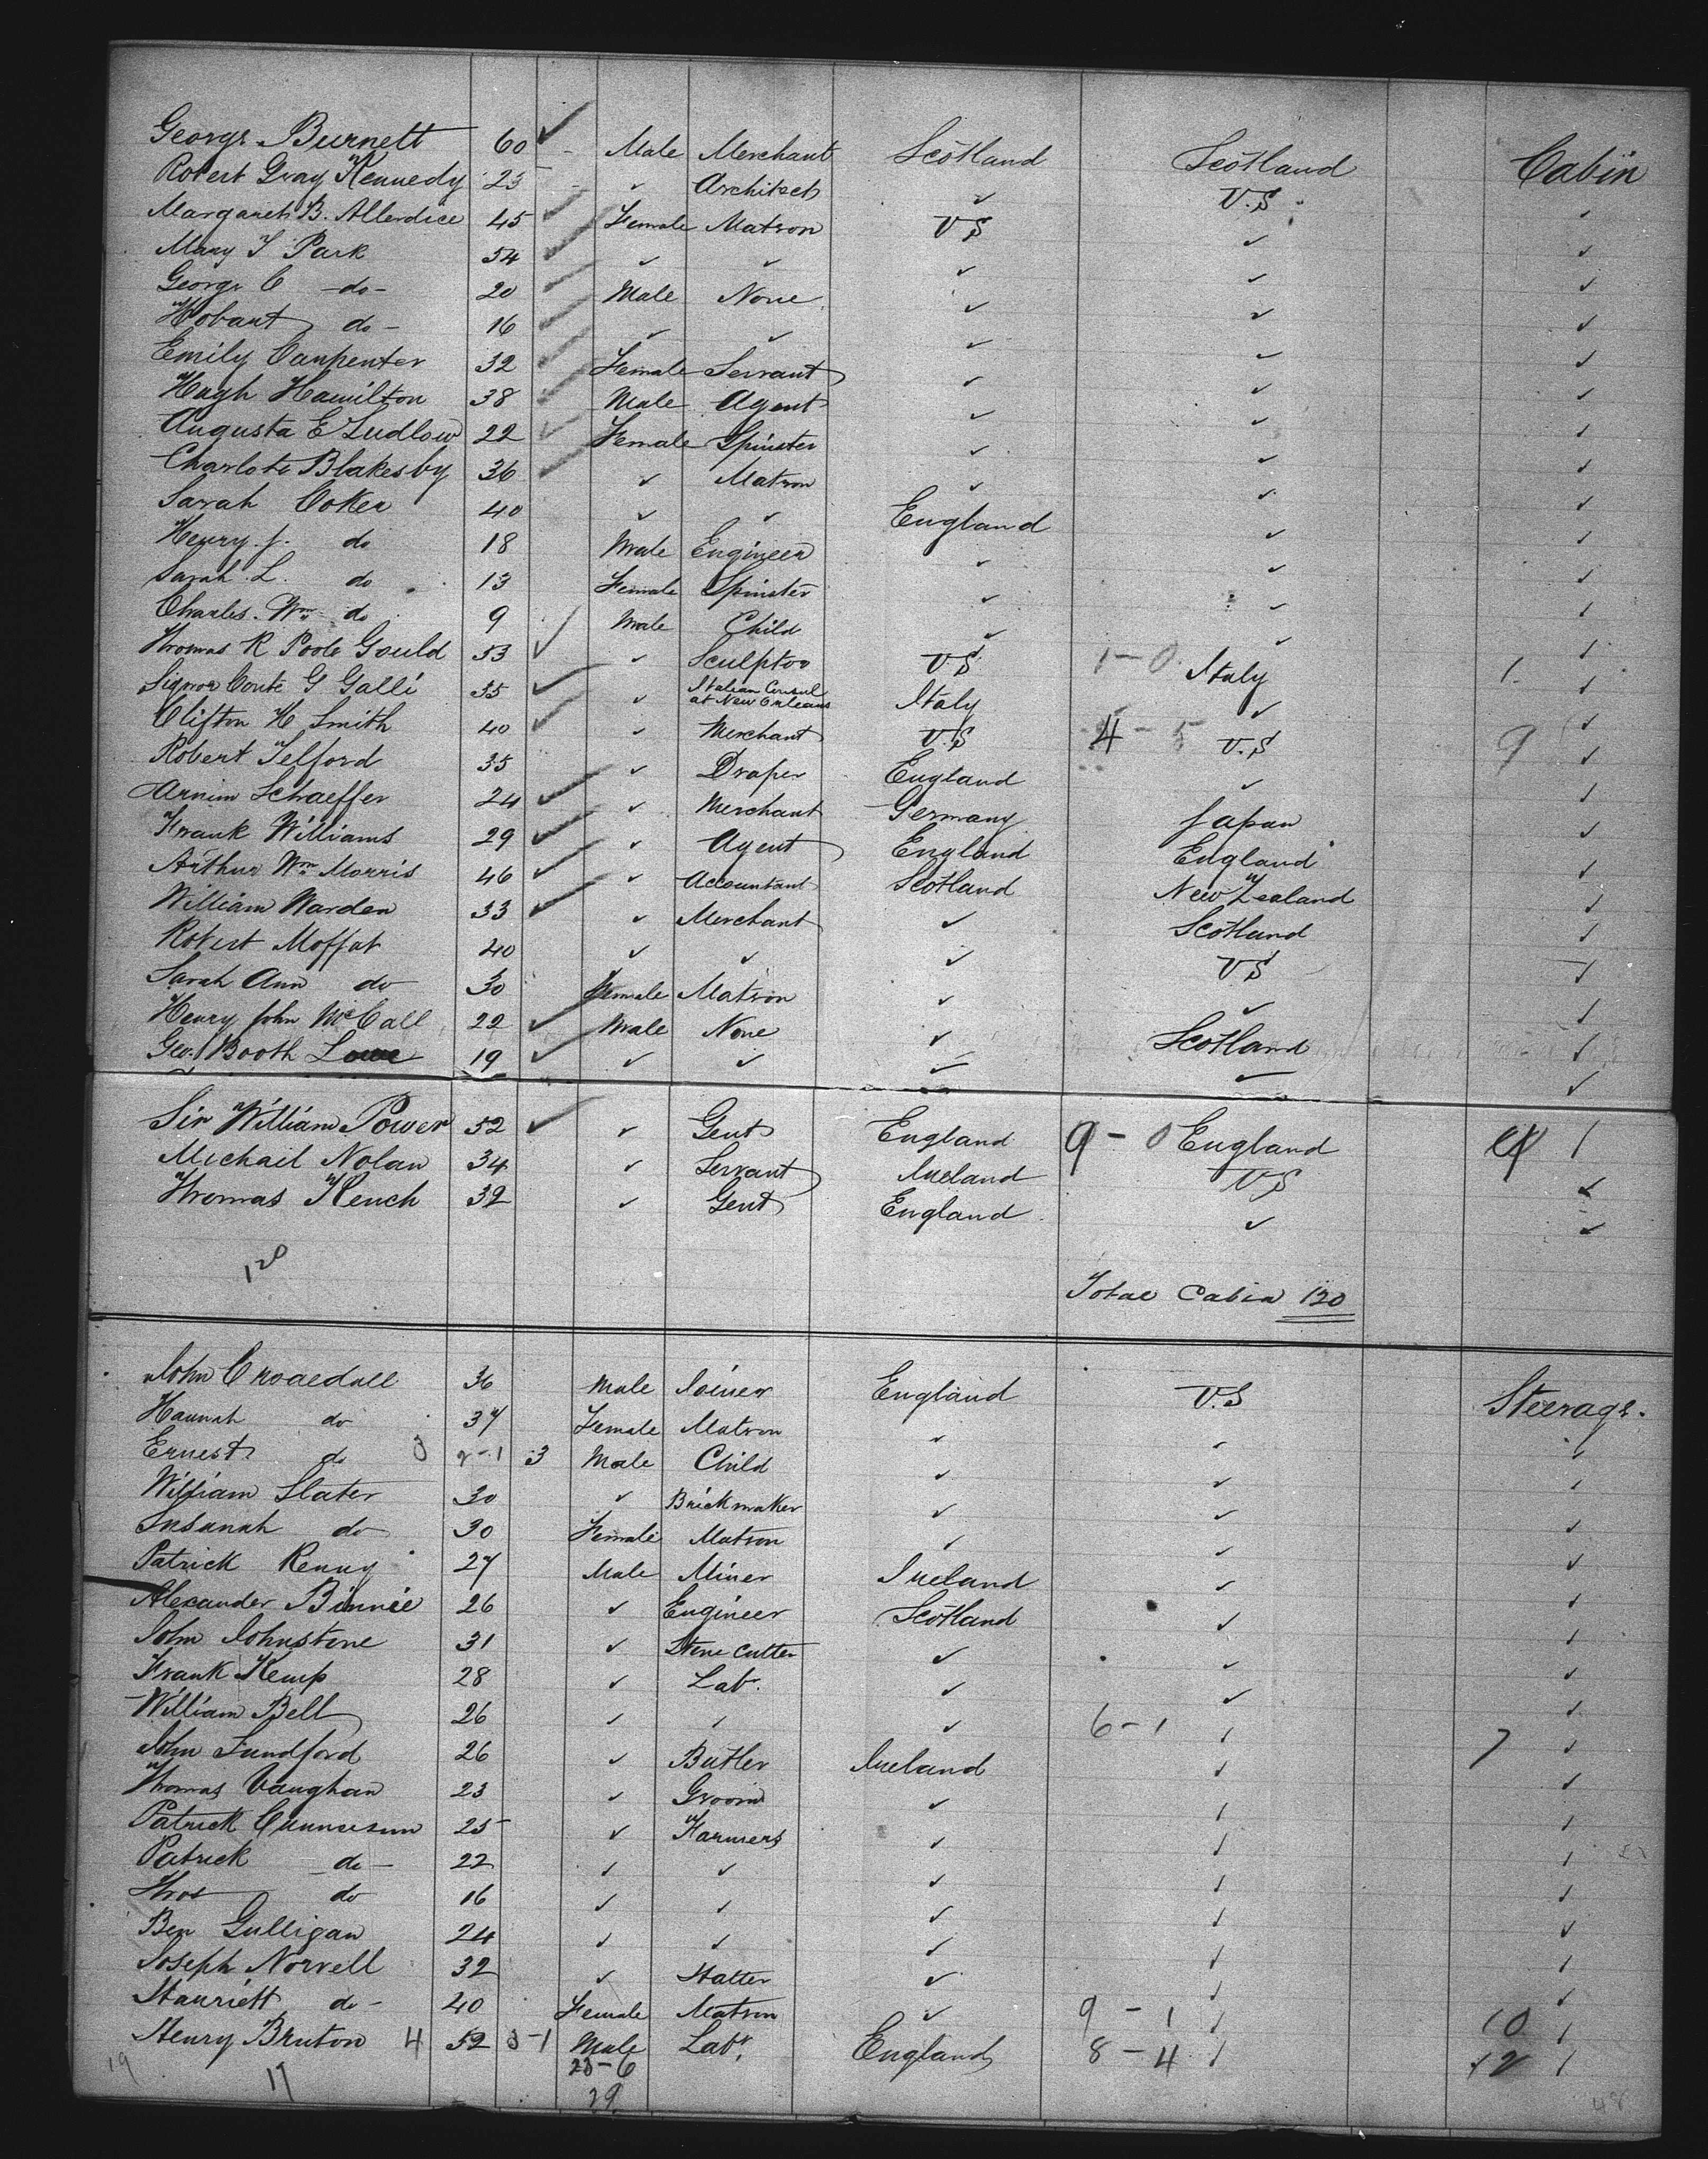 George Burnett 60 ✓ - Male Merchant Scotland Scotland Cabin
Robert Gray Kennedy 25 - ✓ Architect ✓ U.S. ✓
Margaret B. Allerdice 45 ✓ Female Matron US ✓ ✓
Mary T Park 54 ✓ ✓ ✓ ✓ ✓ ✓
George C -do- 20 ✓ Male None ✓ ✓ ✓
Hobart do- 16 ✓ ✓ ✓ ✓ ✓ ✓
Emily Carpenter 32 ✓ Female Servant ✓ ✓ ✓
Hugh Hamilton 38 ✓ Male Agent ✓ ✓ ✓
Augusta E Ludlow 22 ✓ Female Spinster ✓ ✓ ✓
Charlote Blakesby 36 ✓ ✓ Matron ✓ ✓ ✓
Sarah Coker 40 ✓ ✓ England ✓ ✓
Henry J. do 18 Male Engineer ✓ ✓ ✓
Sarah L. do 13 Female Spinster ✓ ✓ ✓
Charles Wm do 9 Male Child ✓ ✓ ✓
Thomas R Poole Gould 53 ✓ ✓ Sculptor US 1-0 Italy 1 ✓
Signor Conte G Galli 35 ✓ ✓ Italian Consul at New Orleans Italy ✓ ✓
Clifton H Smith 40 ✓ ✓ Merchant U.S 4-5 U.S 9 ✓
Robert Telford 35 ✓ Draper England ✓ ✓
Arnim Schaeffer 24 ✓ ✓ Merchant Germany Japan ✓
Frank Williams 29 ✓ ✓ Agent England England ✓
Arthur Wm Morris 46 ✓ ✓ Accountant Scotland New Zealand ✓
William Warden 33 ✓ ✓ Merchant ✓ Scotland ✓
Robert Moffat 40 ✓ ✓ ✓ US ✓
Sarah Ann do 30 Female Matron ✓ ✓ ✓
Henry John McCall 22 ✓ Male None ✓ Scotland ✓
Geo. Booth Lowe 19 ✓ ✓ ✓ ✓ ✓ ✓
Sir William Power 52 ✓ ✓ Gent England 9-0 England 1
Michail Nolan 34 ✓ Servant Ireland US ✓
Thomas Kench 32 ✓ Gent England ✓ ✓
120
Total Cabin 120
John 36 Male Joiner England U.S Steerage.
Hannah do 37 Female Matron ✓ ✓ ✓
Ernest do 3 3 Male Child ✓ ✓ ✓
William Slater 30 ✓ Brickmaker ✓ ✓ ✓
Susanah do 30 Female Matron ✓ ✓ ✓
Patrick Kenny 27 Male Miner Ireland ✓ ✓
Alexander Binnie 26 ✓ Engineer Scotland ✓ ✓
John Johnstone 31 ✓ Stone cutter ✓ ✓ ✓
Frank Kemp 28 ✓ Lab. ✓ ✓ ✓
William Bell 26 ✓ ✓ ✓ 6-1 ✓ 7 ✓
John 26 ✓ Butler Ireland ✓ ✓
Thomas Vaughan 23 ✓ Groom ✓ ✓ ✓
Patrick 25 ✓ Farmers ✓ ✓ ✓
Patrick -do- 22 ✓ ✓ ✓ ✓ ✓
Thos do 16 ✓ ✓ ✓ ✓ ✓
Ben Gulligan 24 ✓ ✓ ✓ ✓ ✓
Joseph Norvell 32 ✓ Hatter ✓ ✓ ✓
Harriett do- 40 Female Matron ✓ 9-1 ✓ 10 ✓
Henry Bruton 4 52 3-1 Male Labr. England 8-4 ✓ 12 ✓
19 17 23-6
29 48